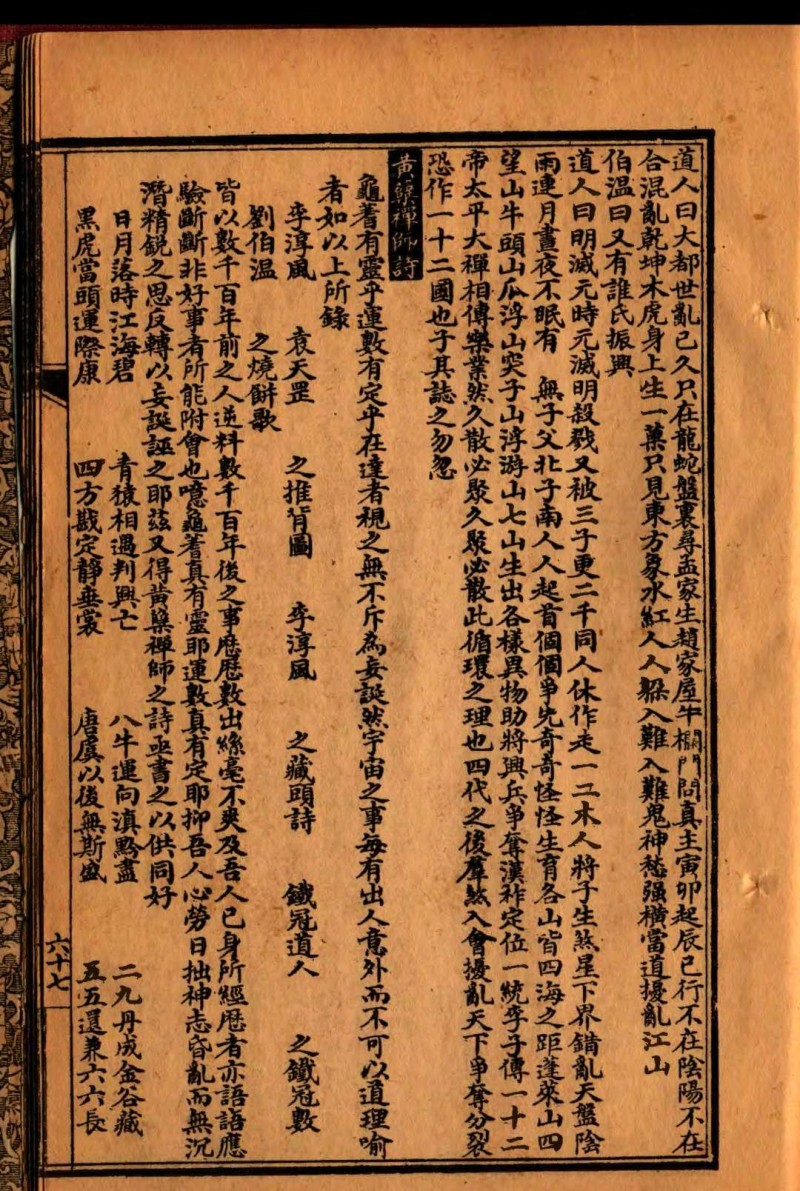 道人曰大都世亂已久只在龍蛇盤裏尋孟家生趙家屋牛欄門問真主寅卯起辰巳行不在陰陽不在
合混亂乾坤木虎身上生一菓只見東方象水紅人人躲入難入難鬼神愁强横當道擾亂江山
伯温曰又有誰氏振興
道人曰明滅元時元滅明殺戮又被三子更二千同人休作走一二木人將子生煞星下界錯亂天盤陰
雨連月晝夜不眠有　無子父北子南人人起首個個爭先奇奇怪怪生育各山皆四海之距蓬萊山四
望山牛頭山瓜浮山突子山浮游山七山生出各樣異物助將興兵爭奪漢祚定位一統李子傳一十二
帝太平大禪相傳樂業然久散必聚久聚必散此循環之理也四代之後羣煞入會擾亂天下爭奪分裂
恐作一十二國也子其誌之勿忽
黄櫱禪師詩
龜蓍有靈乎運數有定乎在達者視之無不斥為妄誕然宇宙之事每有出人意外而不可以道理喻
者如以上所錄
李淳風　袁天罡　之推背圖　李淳風　之藏頭詩　鐵冠道人　之鐵冠數
劉伯温　之燒餅歌
皆以數千百年前之人逆料數千百年後之事歷歷數出絲毫不爽及吾人已身所經歷者亦語語應
驗斷斷非好事者所能附會也噫龜蓍真有靈耶運數真有定耶抑吾人心勞日拙神志昏亂而無沉
潛精鋭之思反轉以妄誕誣之耶茲又得黄櫱禪師之詩亟書之以供同好
日月落時江海碧　青猿相遇判興亡　八牛運向滇黔盡　二九丹成金谷藏
黑虎當頭運際康　四方戡定靜垂裳　唐虞以後無斯盛　五五還兼六六長
六十七